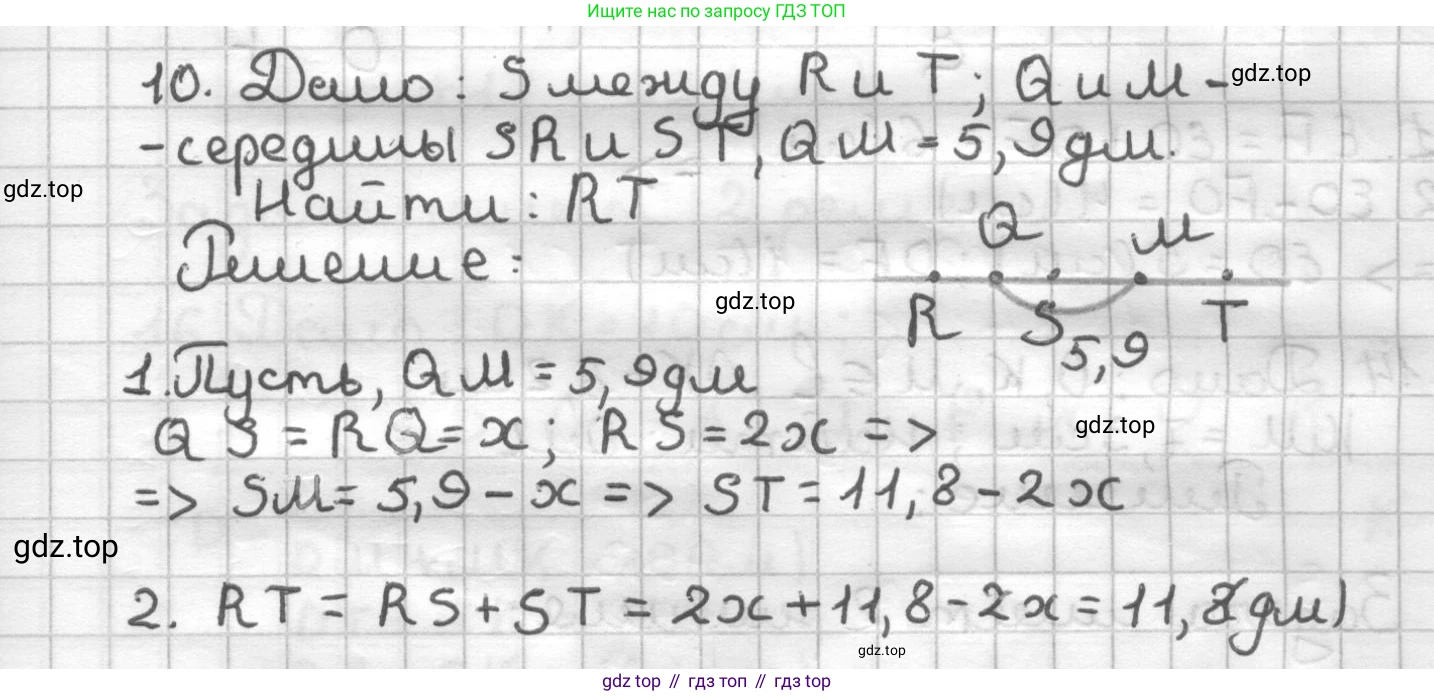 Ищите нас по запросу ГДЗ ТОП
10. Дано: S между R и T; Q и M -
gdz.top
- середины SR и ST, QM = 5,9 дм.
gdz.top
Найти: RT
Решение:
Q M
R S T
5,9
gdz.top
1. Пусть, QM = 5,9 дм
QS = RQ = x; RS = 2x =>
gdz.top
=> SM = 5,9 - x => ST = 11,8 - 2x
gdz.top
2. RT = RS + ST = 2x + 11,8 - 2x = 11,8 (дм)
gdz.top
gdz top // гдз топ // гдз top